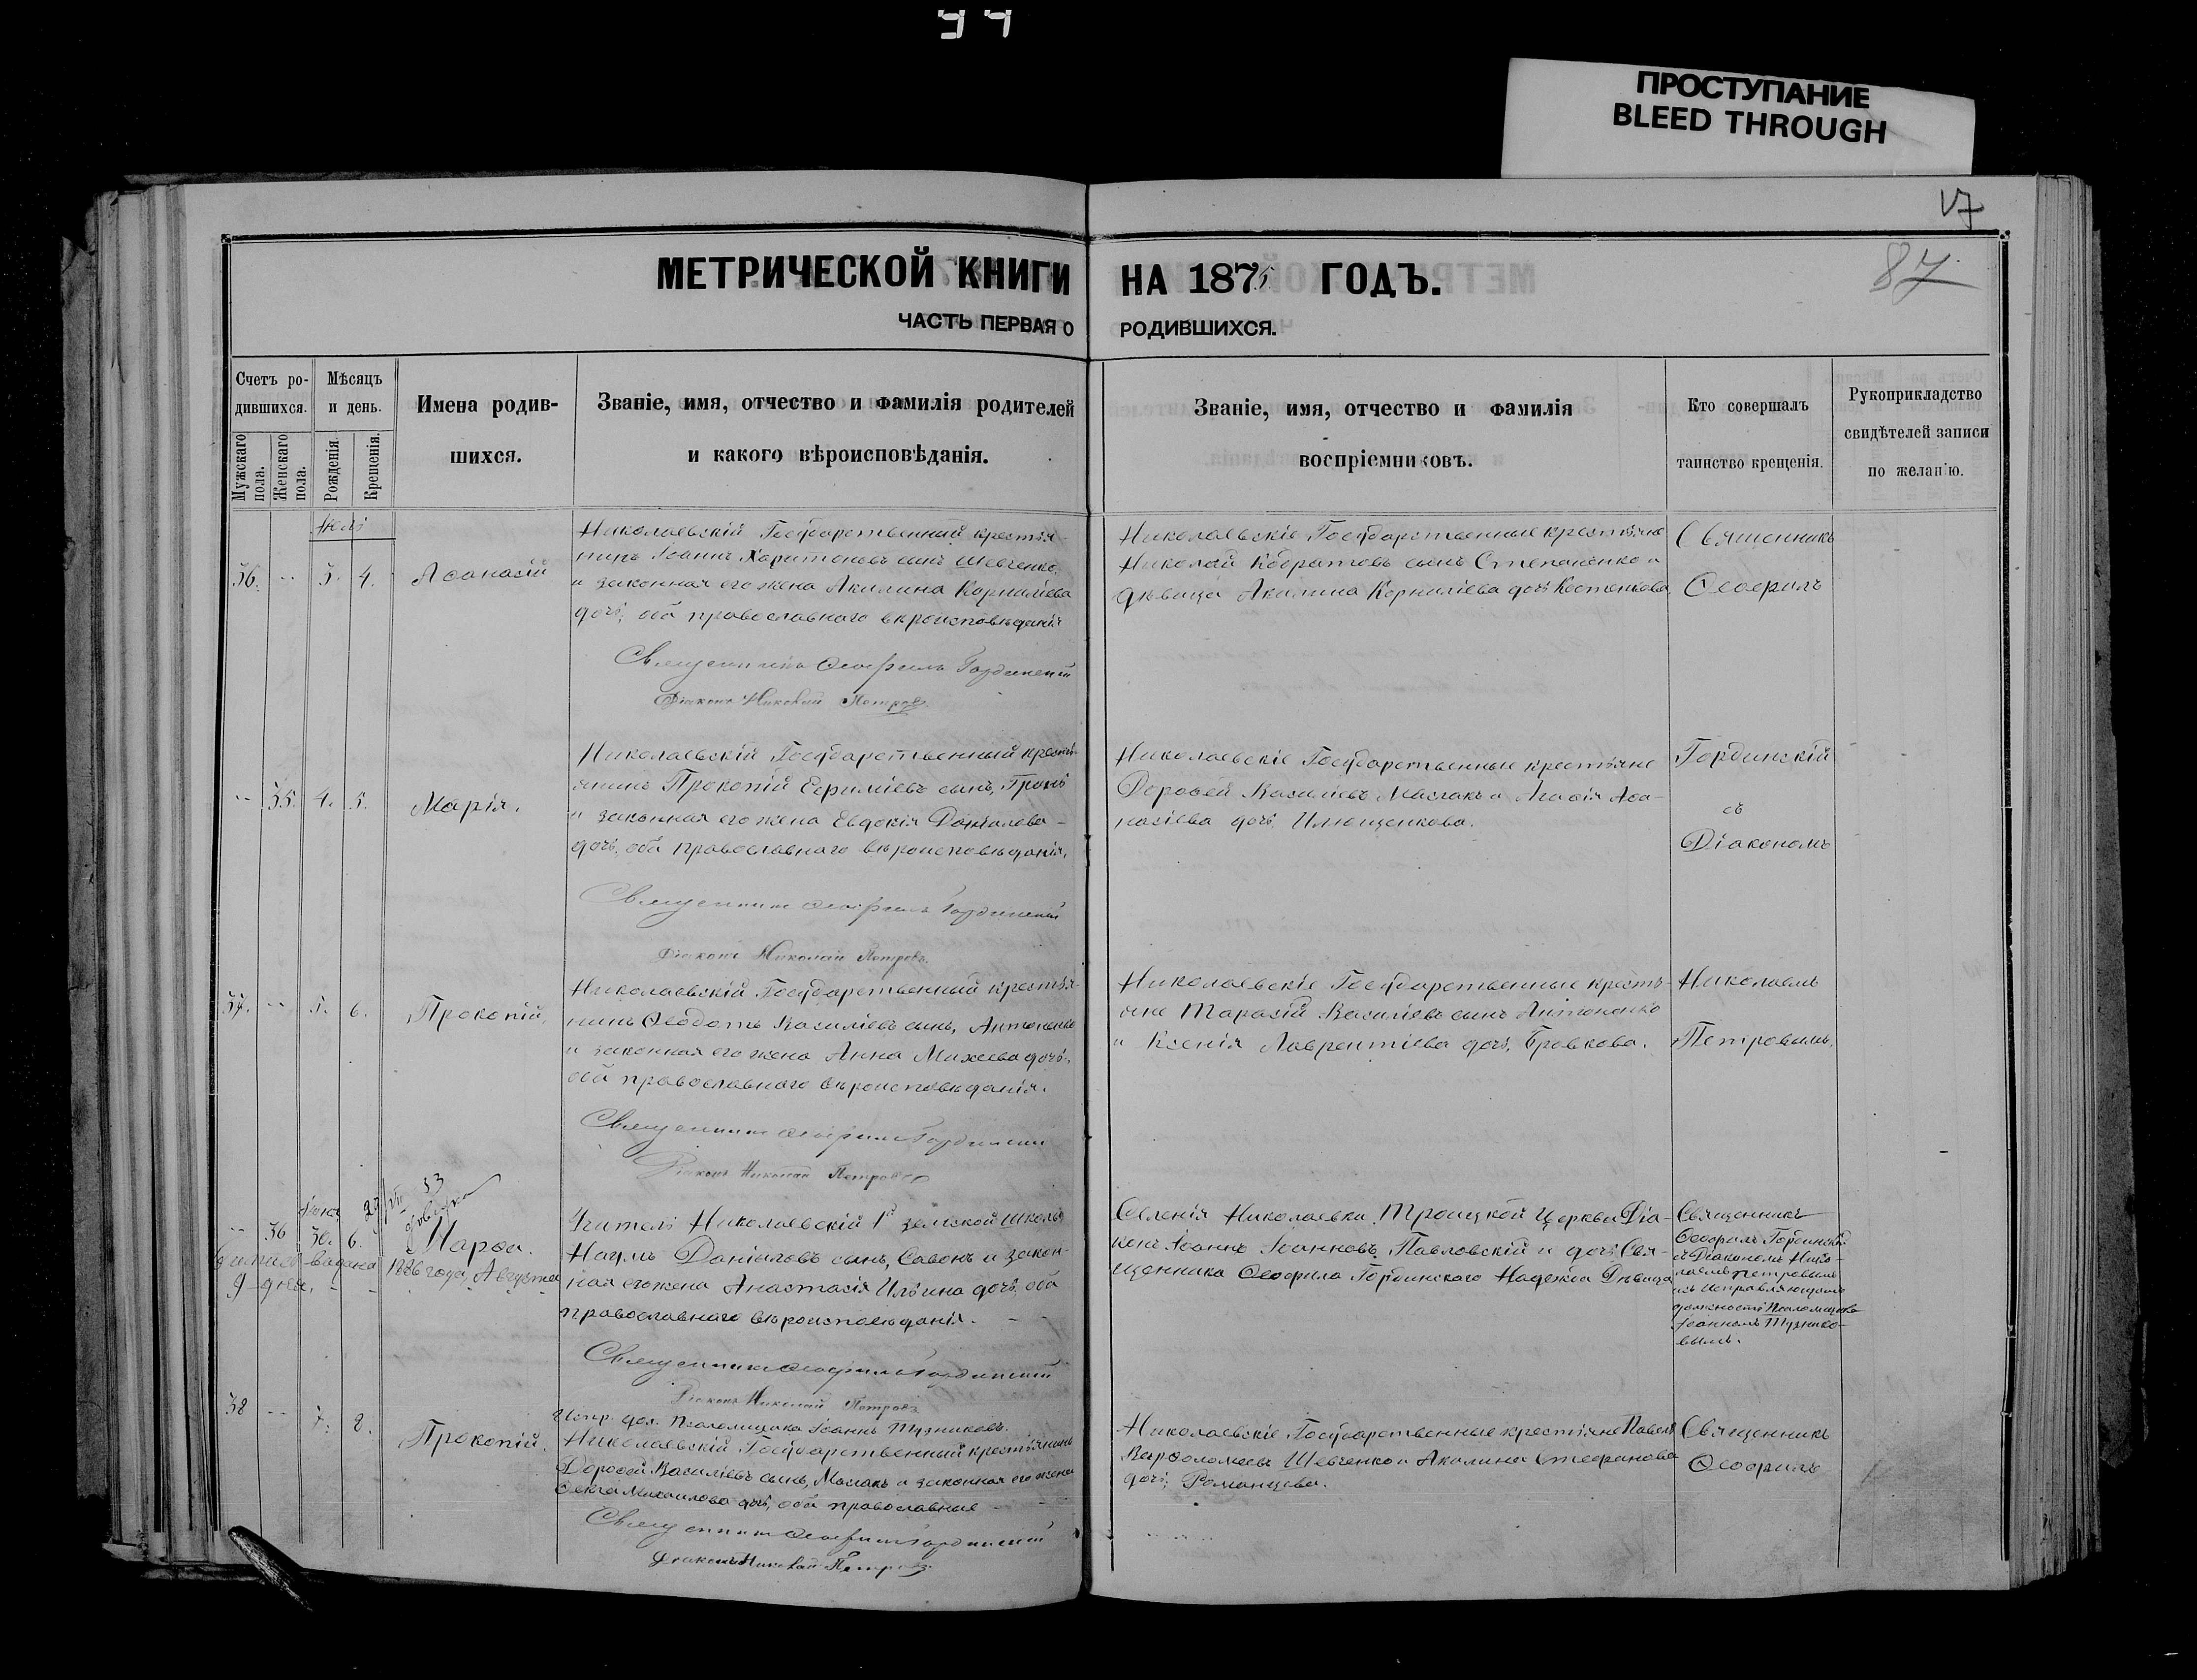 ПРОСТУПАНИЕ
BLEED THROUGH
87
МЕТРИЧЕСКОЙ КНИГИ НА 1875 ГОДЪ.
ЧАСТЬ ПЕРВАЯ О РОДИВШИХСЯ.
Счетъ ро-
дившихся.
Мужскаго пола.
Женскаго пола.
Мѣсяцъ
и день.
Рожденія.
Крещенія.
Имена родив-
шихся.
Званіе, имя, отчество и фамилія родителей
и какого вѣроисповѣданія.
Званіе, имя, отчество и фамилія
воспріемниковъ.
Кто совершалъ
таинство крещенія.
Рукоприкладство
свидѣтелей записи
по желанію.
36. -- 3. 4. Аѳанасій
Николаевскій Государственный крестья-
нинъ Іоаннъ Харитоновъ сынъ Шевченко,
и законная его жена Акилина Корниліева
дочь, оба православнаго вѣроисповѣданія
Священникъ Ѳеофилъ Гординскій
Діаконъ Николай Петровъ.
Николаевскіе Государственные крестьяне
Николай сынъ Степаненко и
дѣвица Акилина Корниліева дочь Костенкова
Священникъ
Ѳеофилъ
-- 35. 4. 5. Марія.
Николаевскій Государственный кресть-
янинъ Прокопій Евфиміевъ сынъ,
и законная его жена Евдокія Даніилова
дочь, оба православнаго вѣроисповѣданія,
Священникъ Ѳеофилъ Гординскій
Діаконъ Николай Петровъ.
Николаевскіе Государственные крестьяне
Дороѳей Василіевъ Маслакъ и Агаѳія Аѳа-
насіева дочь, Илющенкова.
Гординскій
съ
Діакономъ
37. -- 5. 6. Прокопій,
Николаевскій Государственный крестья-
нинъ Ѳеодотъ Василіевъ сынъ, Антоненко
и законная его жена Анна Михеева дочь,
оба православнаго вѣроисповѣданія.
Священникъ Ѳеофилъ Гординскій
Діаконъ Николай Петровъ
Николаевскіе Государственные кресть-
яне Тарасій Василіевъ сынъ Антоненко
и Ксенія Лаврентіева дочь, Бровкова.
Николаемъ
Петровымъ,
-- 36 30. 6. Марѳа.
выдана 1886 года, Августа
9 дня.
Учитель Николаевскій 1й земской школы
Наумъ Даніиловъ сынъ, Савонъ и закон-
ная его жена Анастасія Ильина дочь, оба
православнаго вѣроисповѣданія.
Священникъ Ѳеофилъ Гординскій
Діаконъ Николай Петровъ
Испр. дол. Псаломщика Іоаннъ Тузниковъ.
Селенія Николаевки Троицкой Церкви Діа-
конъ Іоаннъ Іоанновъ Павловскій и дочь Свя-
щенника Ѳеофила Гординскаго Надежда Дѣвица
Священникъ
Ѳеофилъ Гординскій
съ Діакономъ Нико-
лаемъ Петровымъ
и Исправляющимъ
должность Псаломщика
Іоанномъ Тузнико-
вымъ.
38 -- 7. 8. Прокопій.
Николаевскій Государственный крестьянинъ
Дороѳей Василіевъ сынъ, Маслакъ и законная его жена
Ѳекла Михаилова дочь, оба православные
Священникъ Ѳеофилъ Гординскій
Діаконъ Николай Петровъ
Николаевскіе Государственные крестьяне Павелъ
Варѳоломеевъ Шевченко и Акилина Стефанова
дочь, Романцева.
Священникъ
Ѳеофилъ